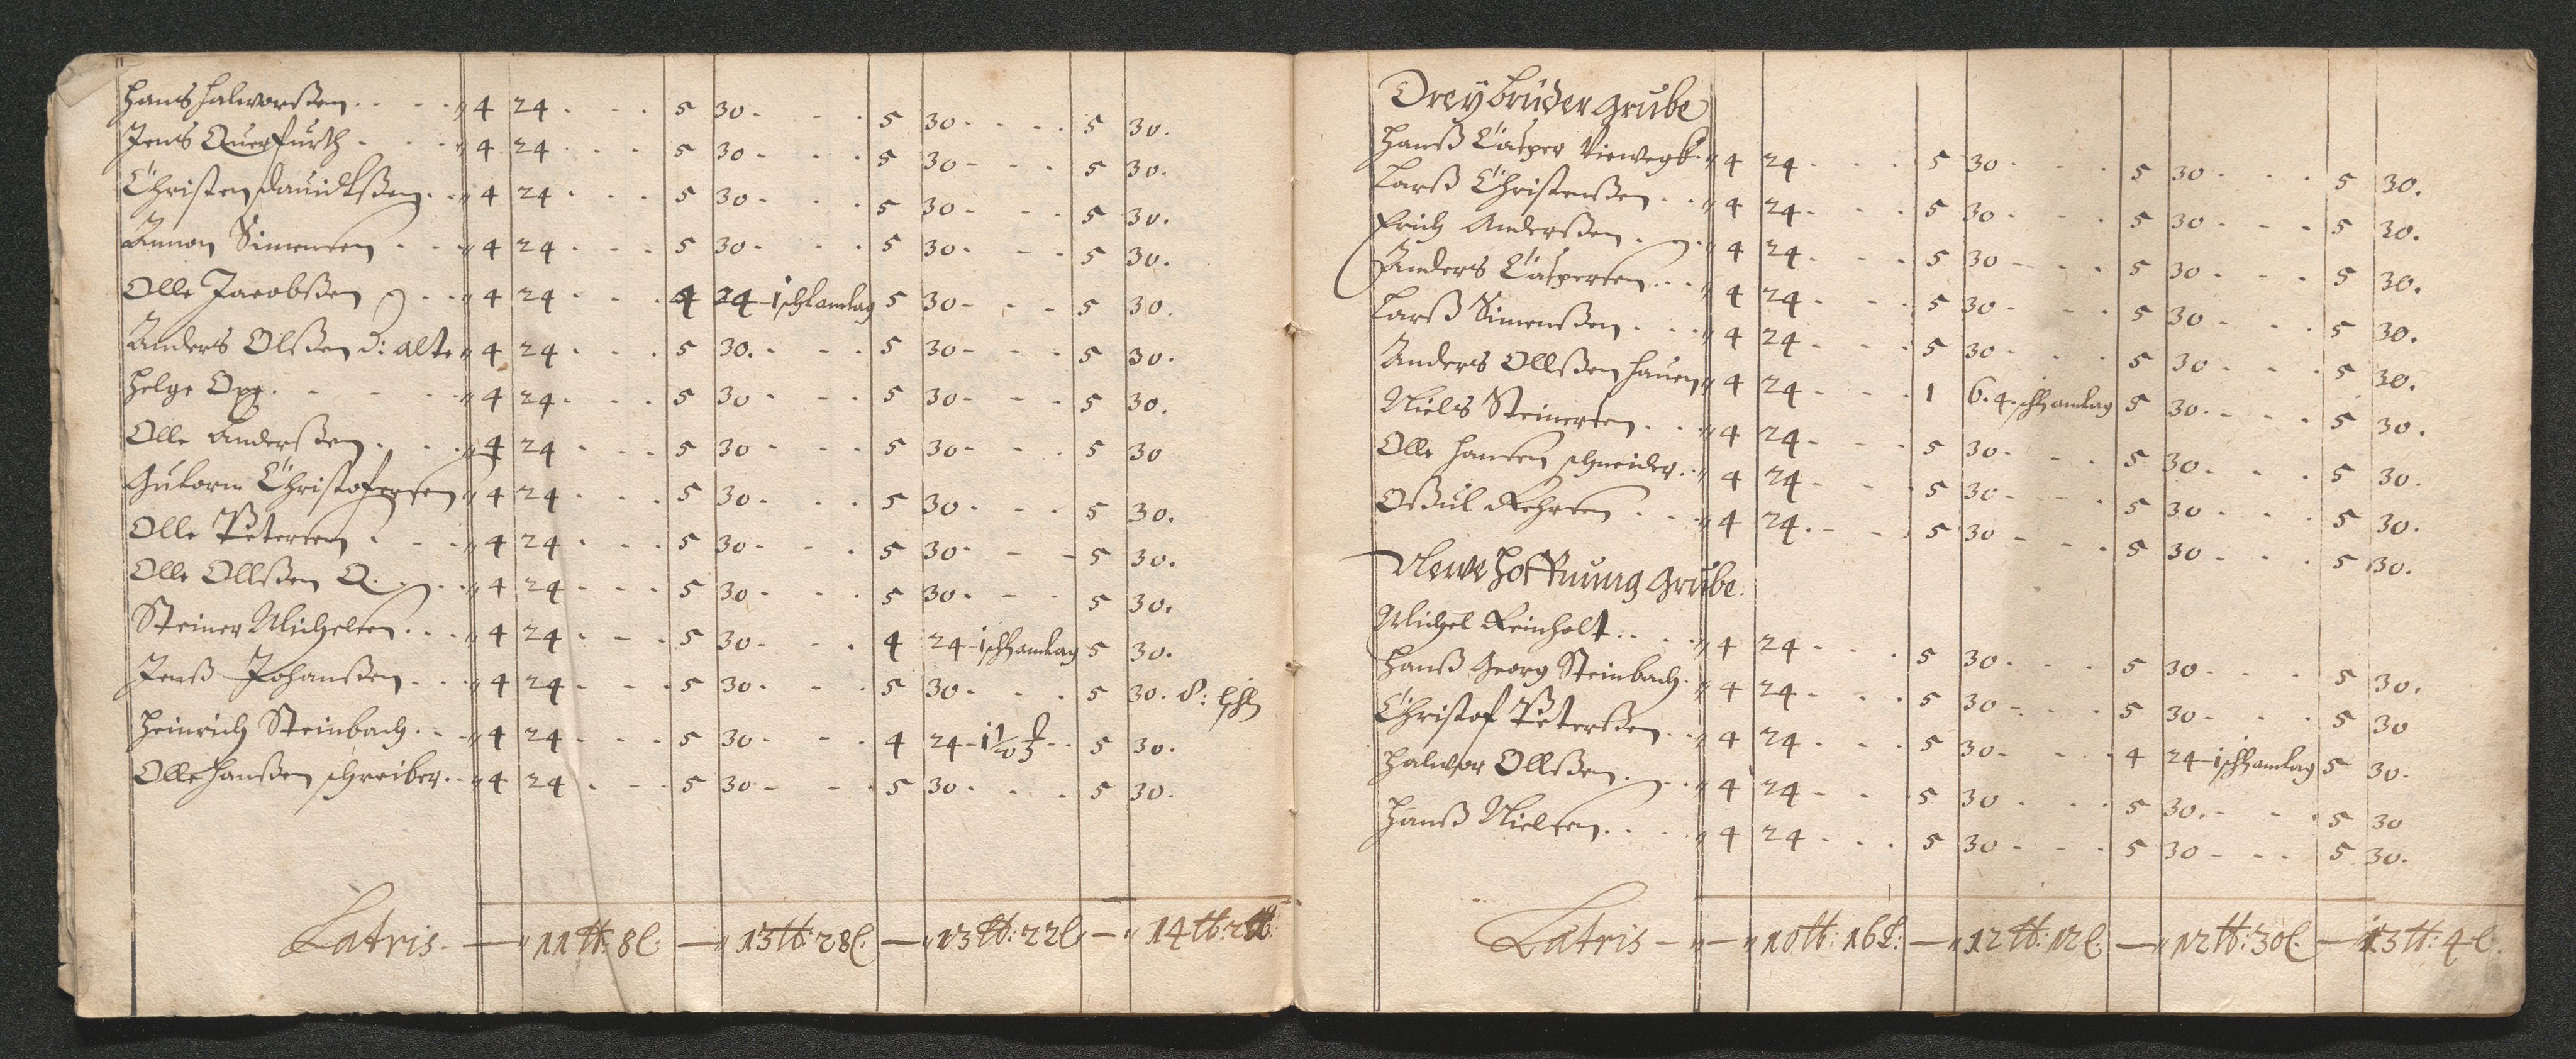 Hans Halworßen . . . . " 4 24 . . . 5 30 . . . 5 30 . . . . 5 30.
Jens Querfurth . . . " 4 24 . . . 5 30 - . . 5 30 - - . 5 30.
Christen Dauidtßen . . " 4 24 . . . 5 30 - . . 5 30 - - . 5 30.
Simensen . . . " 4 24 . . . 5 30 - . . 5 30 . - . 5 30.
Olle Jacobßen . . " 4 24 . . . 4 24 - 1 schamdag 5 30 - - . 5 30.
Anders Olßen d: alte " 4 24 . . . 5 30. - . . 5 30 - - . 5 30.
Helge . - . . " 4 24 . . . 5 30 . - . 5 30 - - . 5 30.
Olle Anderßen . . . " 4 24 . . . 5 30 - . . 5 30 - - . 5 30
Gulorm Christofersen " 4 24 . . . 5 30 . . . 5 30 . . . 5 30.
Olle Petersen . . . " 4 24 . . . 5 30 - . . 5 30 - - - 5 30.
Olle Ollßen Q. . " 4 24 . . . 5 30 - . . 5 30 . - . 5 30.
Steiner Michelsen . . . " 4 24 . - . 5 30 - . . 4 24 - 1 schamdag 5 30.
Jenß Johanßen . . . " 4 24 - - . 5 30 . - . 5 30 . . . 5 30.
Heinrich Steinbach . . " 4 24 - . . 5 30 - - . 4 24 - . . 5 30.
Olle Hanßen schreiber . . " 4 24 . - . 5 30 - - . 5 30 . . . 5 30.
Latris. — " 11 tb: 8 l. — " 13 tb: 28 l. — " 13 tb: 22 l. — " 14 tb:
Dreybrüder grube
Hanß Casper Viewegk . " 4 24 . . . 5 30 . . . 5 30 . . . 5 30.
Larß Christenßen . . " 4 24 . - . 5 30 . . . 5 30 - - . 5 30.
Erich Anderßen . . " 4 24 . . . 5 30 - . . 5 30 . . . 5 30.
Anders Caspersen . . . " 4 24 . - . 5 30 - . . 5 30 - . . 5 30.
Larß Simenßen . . . " 4 24 . . . 5 30 . . . 5 30 . - . 5 30.
Anders Ollßen Hauen " 4 24 - - . 1 6. 4. schamdag 5 30. - . . 5 30.
Niels Steinersen . . " 4 24 - - . 5 30. - . 5 30. . . 5 30.
Olle Hansen schneider . . " 4 24 - - . 5 30 - . . 5 30 . . . 5 30.
Oßul . . . " 4 24. - . 5 30 - . . 5 30 . . . 5 30.
Newe Hoffnung Grube.
Michel Reinholt . . . . " 4 24 - - . 5 30 . . . 5 30 . . . 5 30.
Hanß Georg Steinbach . " 4 24 - . . 5 30 - . . 5 30 . . . 5 30
Christof Peterßen . . " 4 24 . . . 5 30 - . . 4 24 - 1 schamdag 5 30.
Halwor Ollßen . . . " 4 24 - - . 5 30 . . . 5 30. - . . 5 30
Hanß Nielsen . . . . " 4 24 - . . 5 30 - - . 5 30 - - . 5 30.
Latris — " — " 10 tb: 16 l: — " 12 tb: 12 l. — " 12 tb: 30 l. — 13 tb: 4 l.